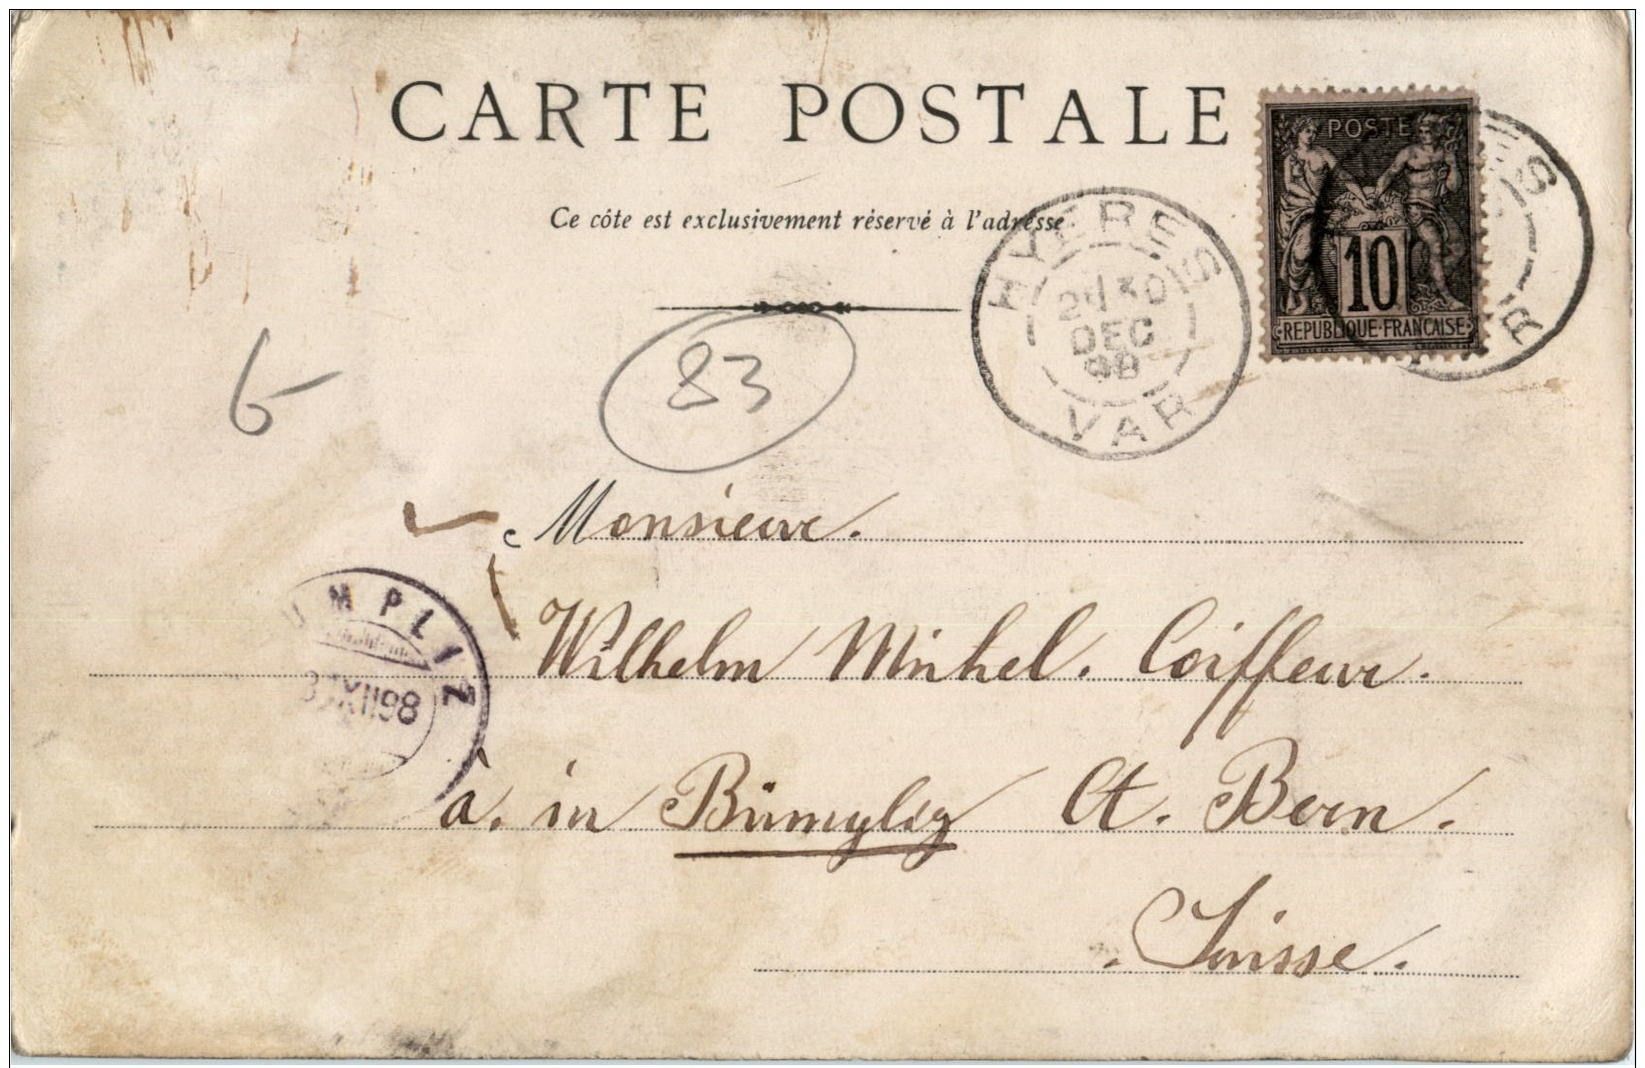 CARTE POSTALE
POSTE
10
REPUBLIQUE·FRANCAISE
Ce côte est exclusivement réservé à l'adresse
HYERES
30
DEC
98
VAR
83
6
Monsieur.
Wilhelm Michel. Coiffeur.
UMPLIZ
XII98
à. in Bümpliz Ct. Bern.
Suisse.